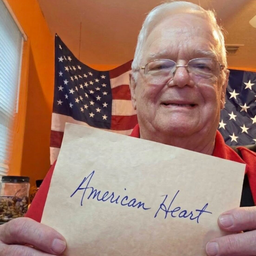 American Heart